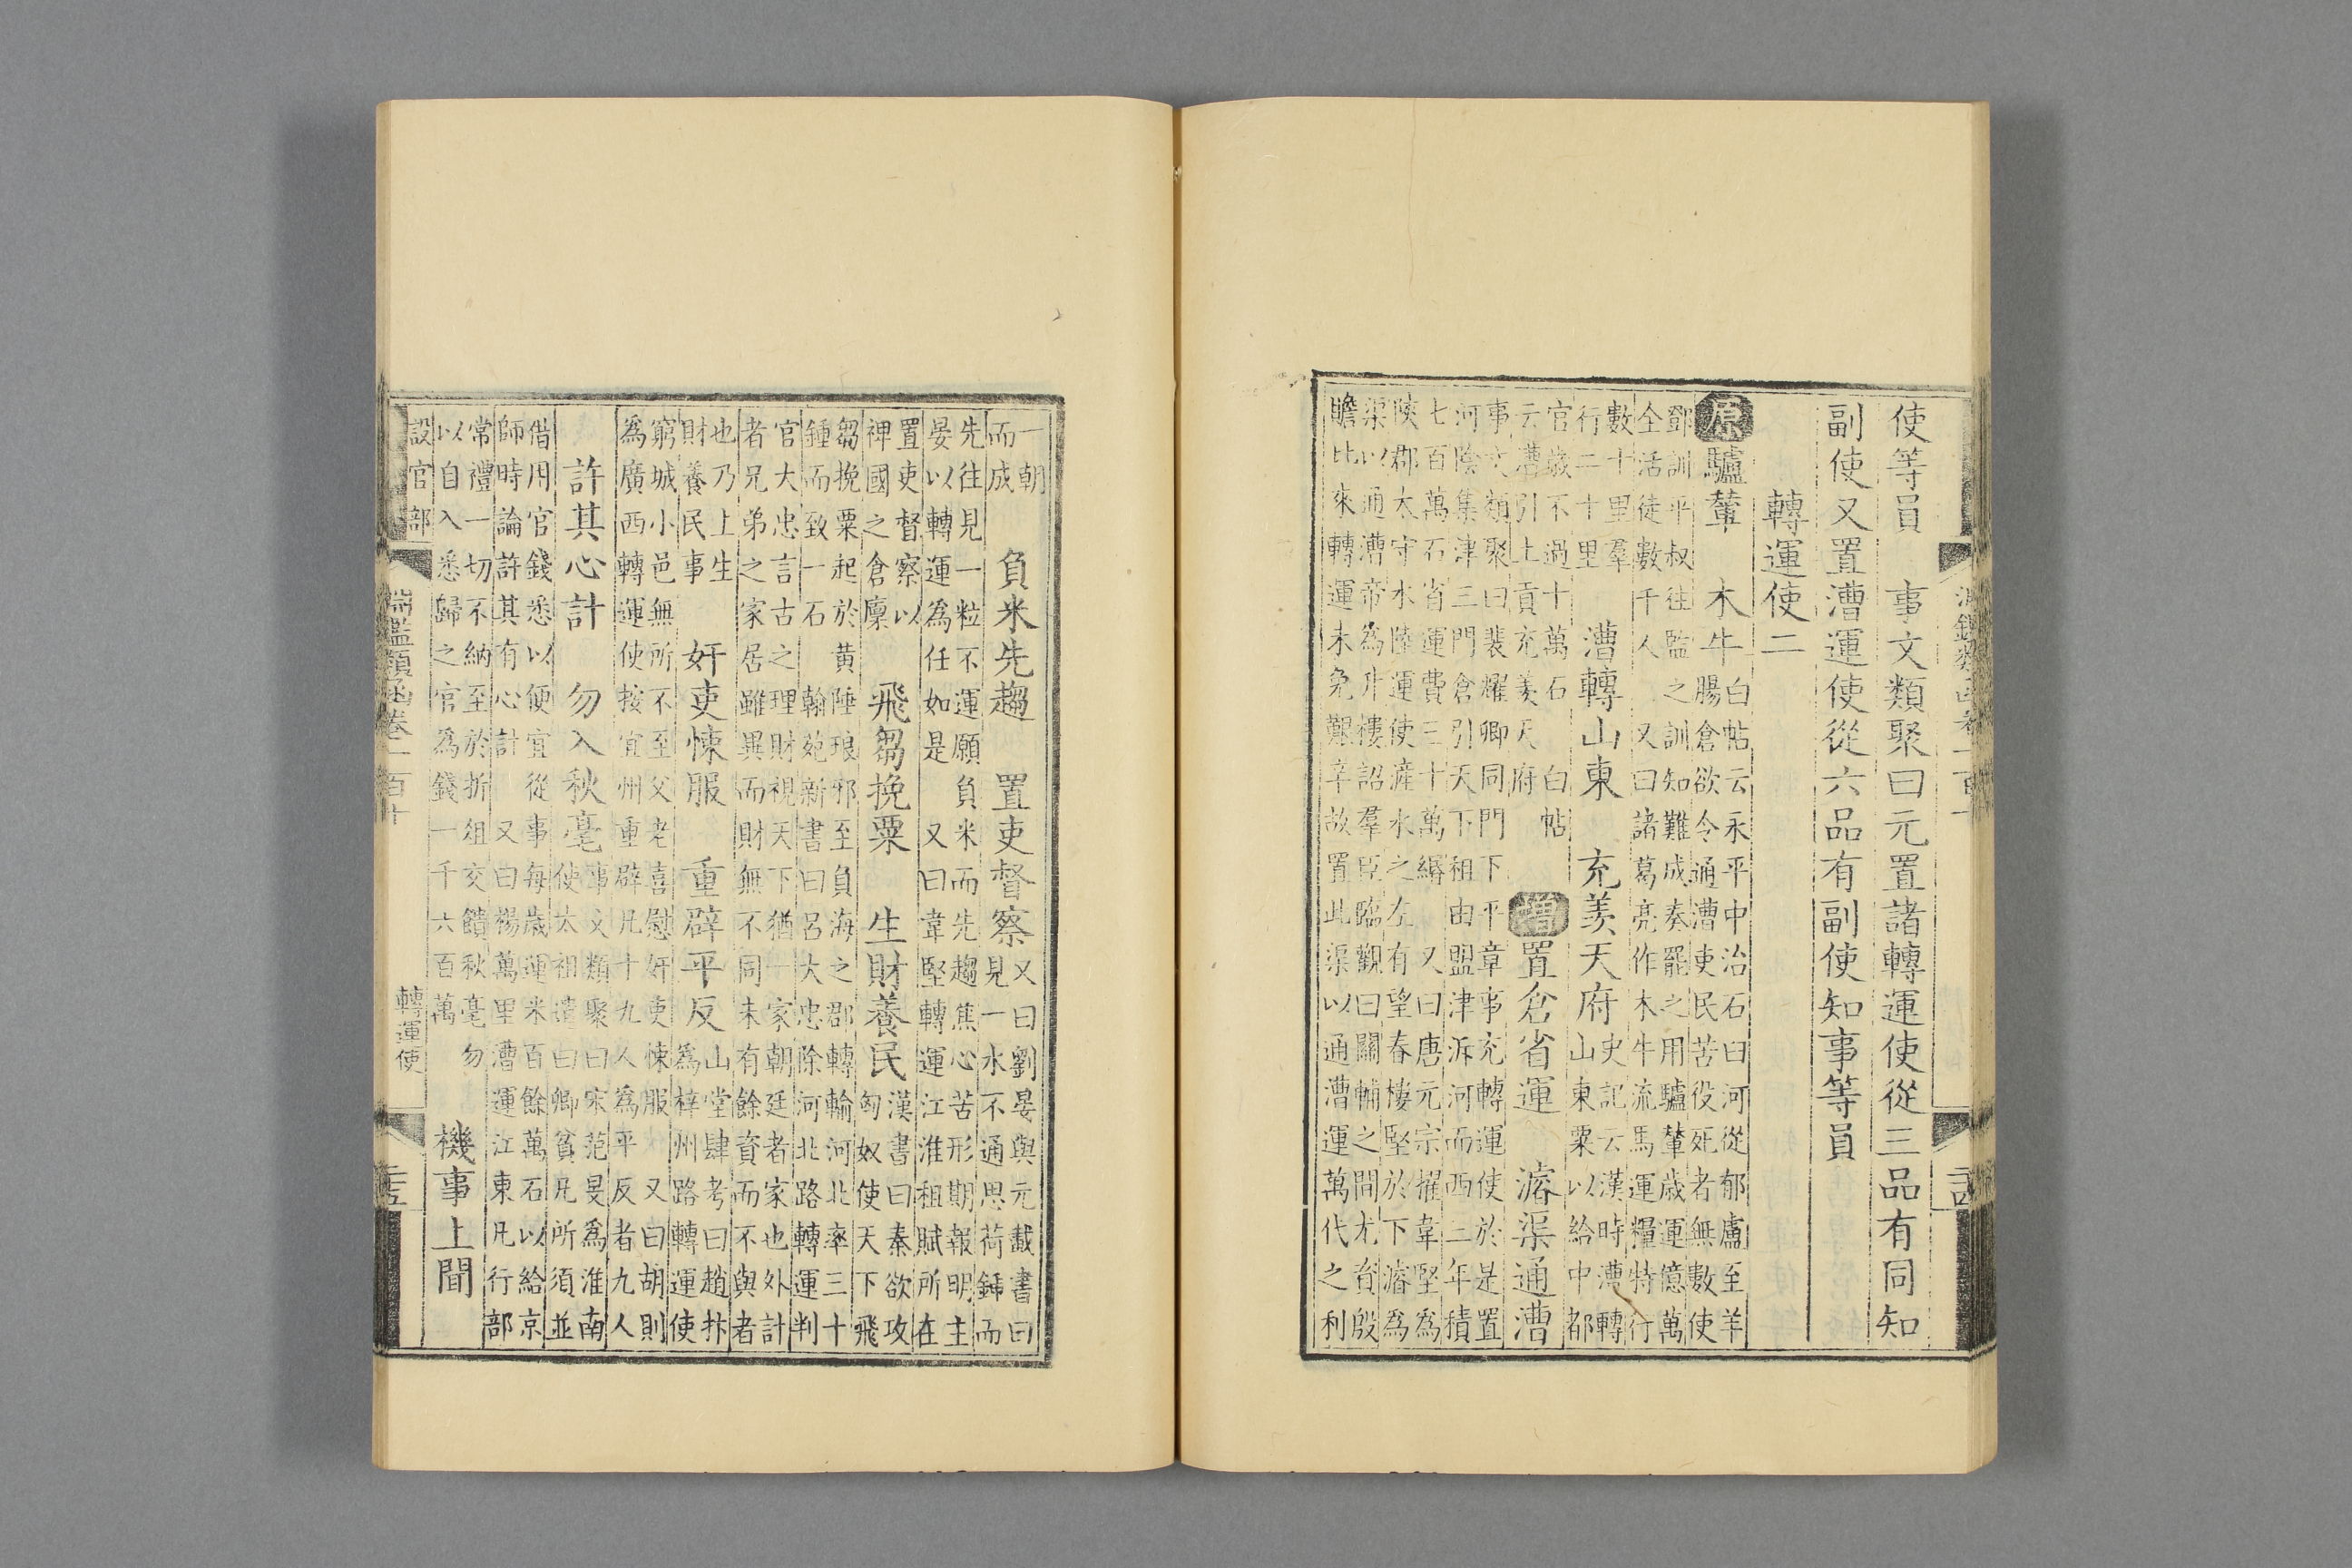 使等員　事文類聚曰元置諸轉運使從三品有同知
副使又置漕運使從六品有副使知事等員
轉運使二
原驢輦　木牛
白帖云永平中治石臼河從郁盧至羊
腸倉欲令通漕吏民苦役死者無數使
鄧訓平叔往監之訓知難成奏罷之用驢輦歲運億萬
全活徒數千人　又曰諸葛亮作木牛流馬運糧特行
數十里羣
行二十里
漕轉山東　充羨天府
史記云漢時漕轉
山東粟以給中都
官歲不過十萬石　白帖
云漕引土貢充羨天府
增置倉省運　濬渠通漕
事文類聚曰裴耀卿同門下平章事充轉運使於是置
河陰集津三門倉引天下租由盟津泝河而西三年積
七百萬石省運費三十萬緡　又曰唐元宗擢韋堅為
陝郡太守水陸運使滻水之左有望春樓堅於下濬為
渠以通漕帝為升樓詔羣臣臨觀曰關輔之間尤資殷
贍比來轉運未免艱辛故置此渠以通漕運萬代之利
一朝
而成
負米先趨　置吏督察
又曰劉晏與元載書曰
見一水不通思荷鍤而
先往見一粒不運願負米而先趨焦心苦形期報明主
晏以轉運為任如是　又曰韋堅轉運江淮租賦所在
置吏督察以
裨國之倉廩
飛芻挽粟　生財養民
漢書曰秦欲攻
匈奴使天下飛
芻挽粟起於黃陲琅邪至負海之郡轉輸河北率三十
鍾而致一石　翰苑新書曰呂大忠除河北路轉運判
官大忠言古之理財視天下猶一家朝廷者家也外計
者兄弟之家居雖異而財無不同未有餘資而不與者
也乃上生
財養民事
奸吏悚服　重辟平反
山堂肆考曰趙抃
為梓州路轉運使
窮城小邑無所不至父老喜慰奸吏悚服　又曰胡則
為廣西轉運使按宜州重辟凡十九人為平反者九人
許其心計　勿入秋毫
事文類聚曰宋范旻為淮南
使太祖遣曰卿貧凡所須並
借用官錢悉以便宜從事每歲運米百餘萬石以給京
師時論許其有心計　又曰楊萬里漕運江東凡行部
常禮一切不納至於折俎交饋秋毫勿
以自入悉歸之官為錢一千六百萬
機事上聞
設官部　淵鑑類函卷一百十　轉運使　二十五